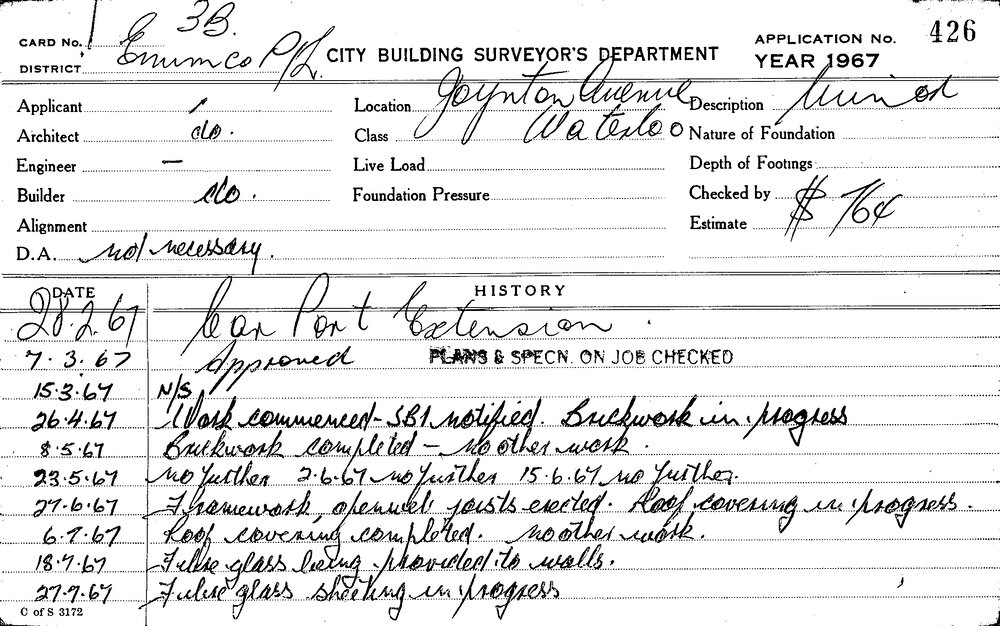 3B.
CARD No.
DISTRICT
Emmco P/L.
CITY BUILDING SURVEYOR'S DEPARTMENT
APPLICATION No. 426
YEAR 1967
Applicant
Location Joynton Avenue
Waterloo
Description Minor
Architect do.
Class
Nature of Foundation
Engineer —
Live Load
Depth of Footings
Builder do.
Foundation Pressure
Checked by
Alignment
Estimate $ 764
D.A. not necessary.
DATE HISTORY
28.2.67 Car Port Extension.
7.3.67 Approved PLANS & SPECN. ON JOB CHECKED
15.3.67 N/S
26.4.67 Work commenced - SB1 notified. Brickwork in progress
8.5.67 Brickwork completed — no other work.
23.5.67 no further 2.6.67 no further 15.6.67 no further.
27.6.67 Framework, openweb joists erected. Roof covering in progress.
6.7.67 Roof covering completed. no other work.
18.7.67 Fibre glass being provided to walls.
27.7.67 Fibre glass sheeting in progress
C of S 3172